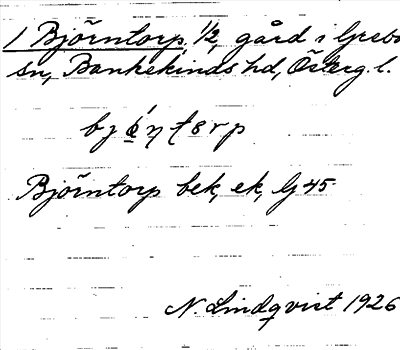 1 Björntorp, 1/2, gård i Grebo
sn, Bankekinds hd, Österg. l.
Björntorp bek, ek, lj 45
N. Lindqvist 1926